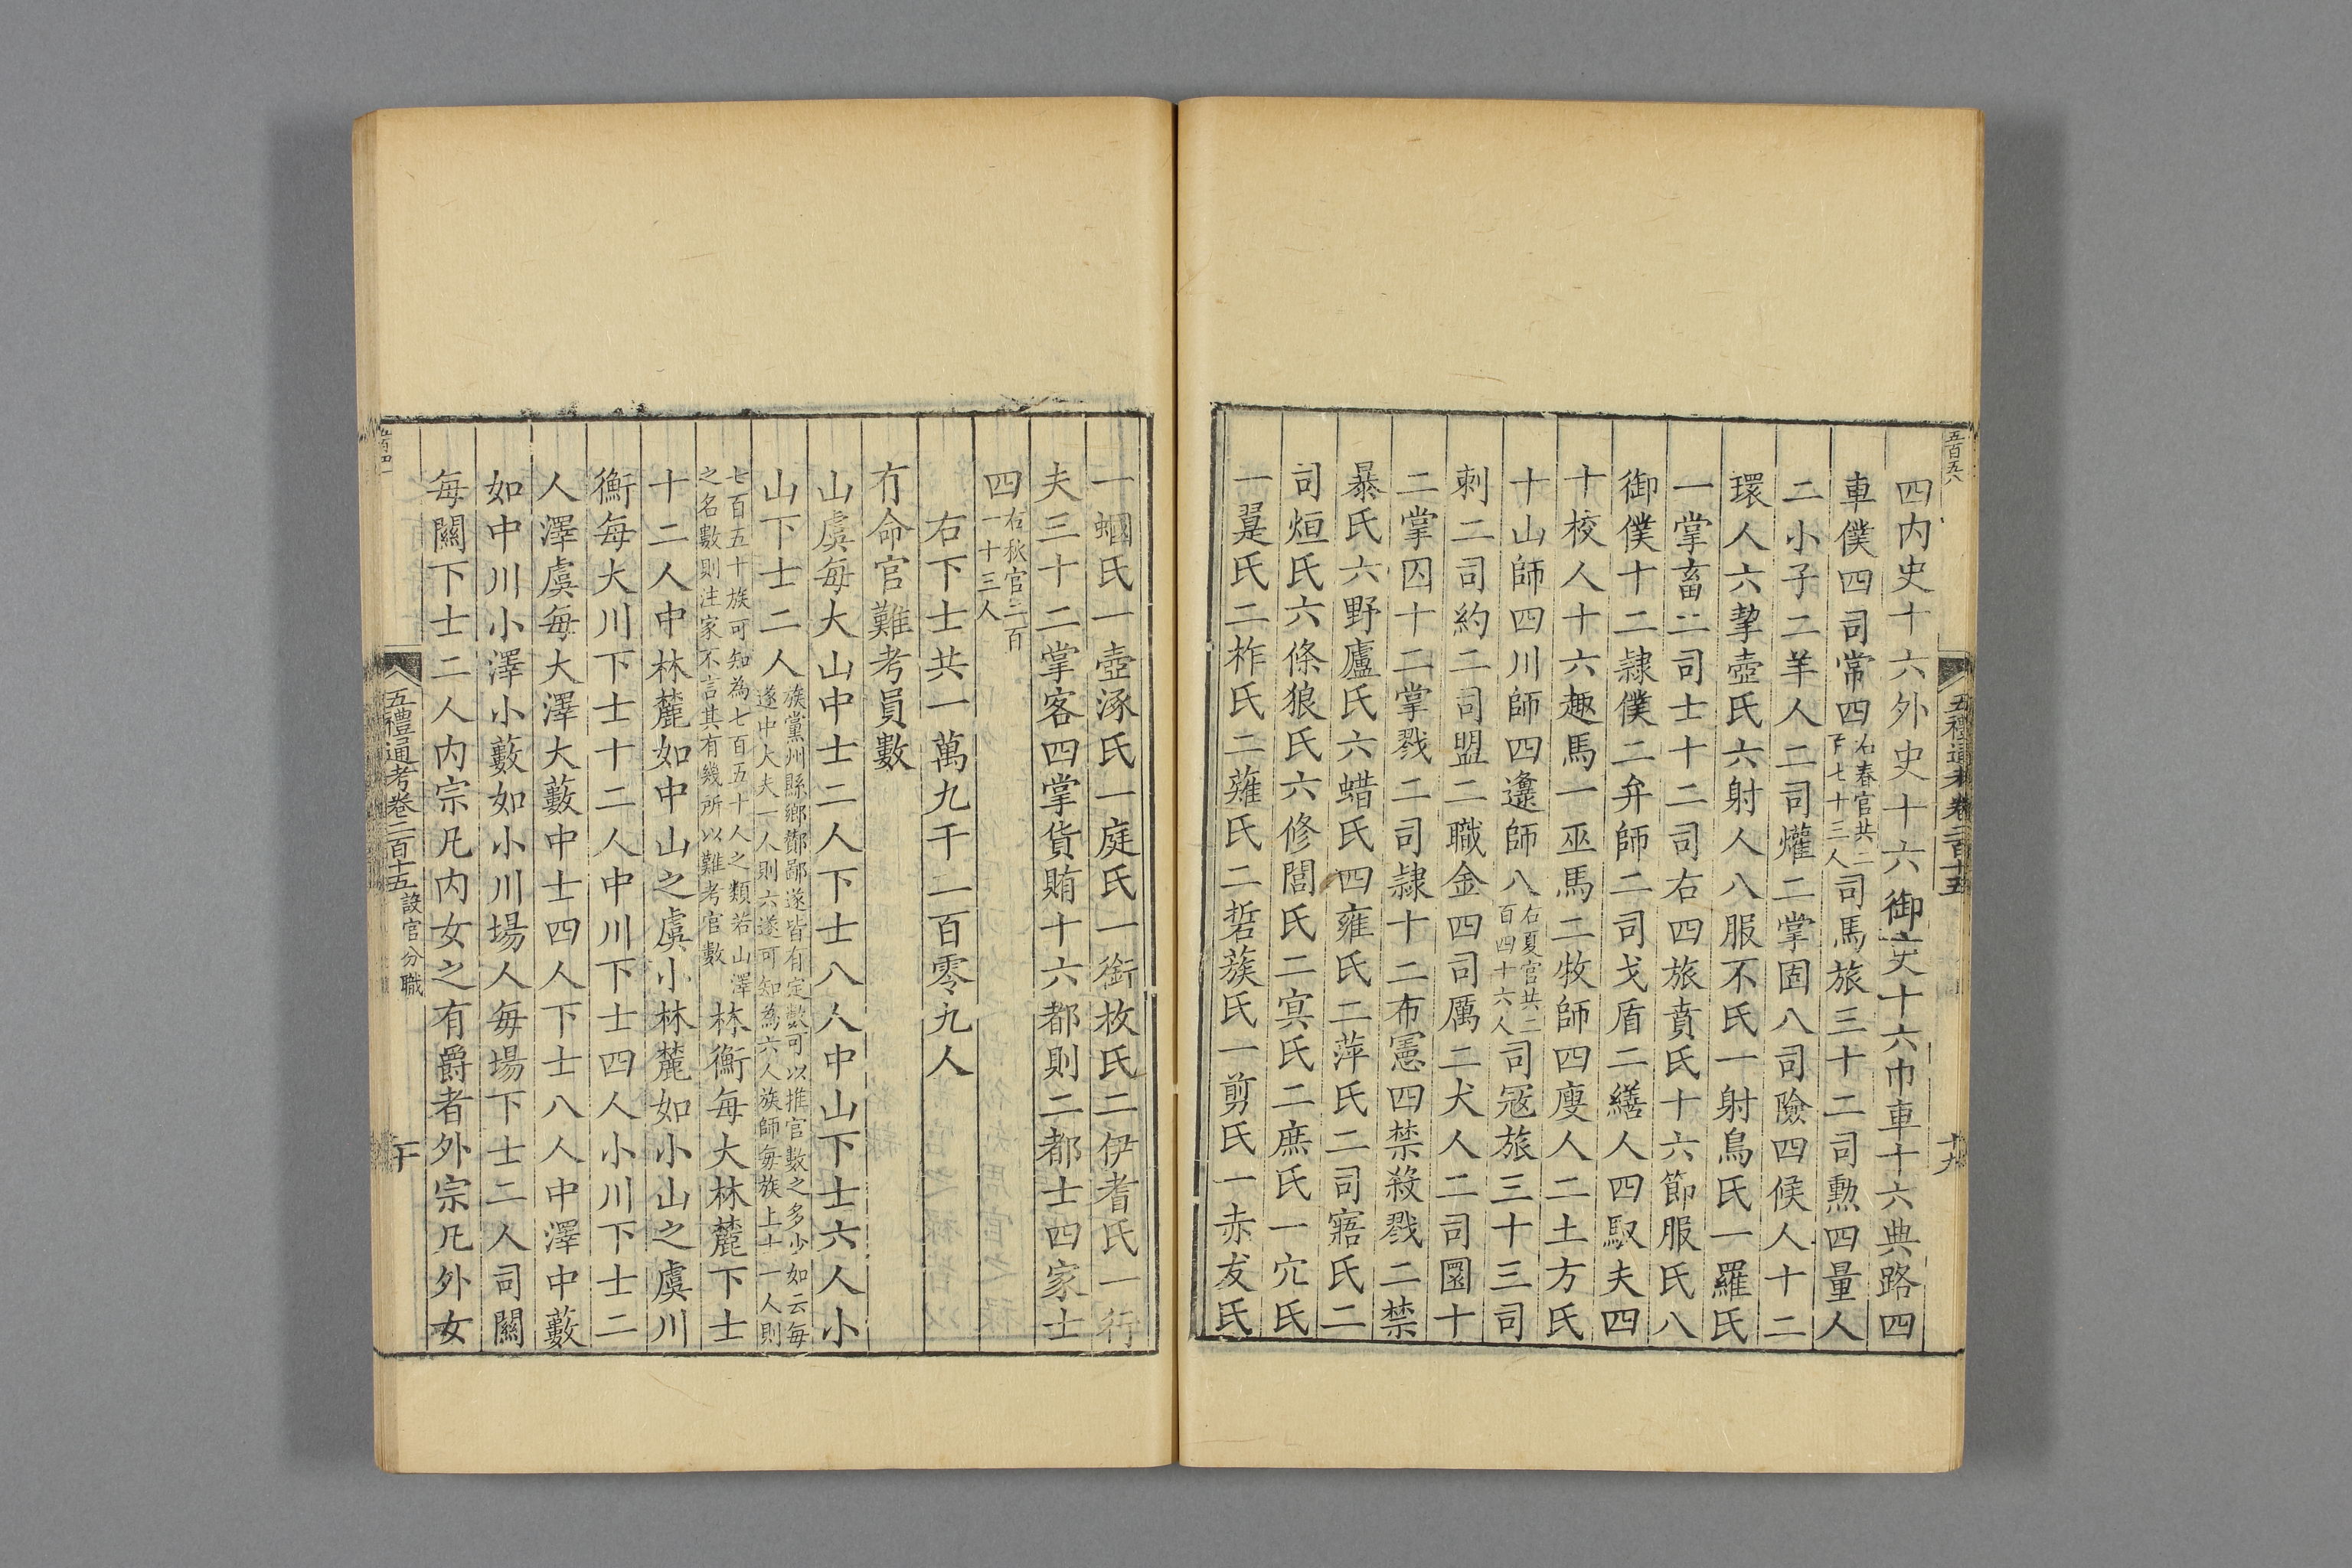 五百五八
五禮通考卷二百十五
十九
四内史十六外史十六御史十六巾車十六典路四
車僕四司常四右春官共二千七十三人司馬旅三十二司勲四量人
二小子二羊人二司爟二掌固八司險四候人十二
環人六挈壺氏六射人八服不氏一射鳥氏一羅氏
一掌畜二司士十二司右四旅賁氏十六節服氏八
御僕十二隷僕二弁師二司戈盾二繕人四馭夫四
十校人十六趣馬一巫馬二牧師四廋人二土方氏
十山師四川師四邍師八右夏官共二百四十六人司冦旅三十三司
刺二司約二司盟二職金四司厲二犬人二司圜十
二掌囚十二掌戮二司隷十二布憲四禁殺戮二禁
暴氏六野廬氏六蜡氏四雍氏二萍氏二司寤氏二
司烜氏六條狼氏六修閭氏二㝠氏二庶氏一穴氏
一翨氏二柞氏二薙氏二硩蔟氏一剪氏一赤犮氏
一蟈氏一壺涿氏一庭氏一銜枚氏二伊耆氏一行
夫三十二掌客四掌貨賄十六都則二都士四家士
四右秋官二百一十三人
右下士共一萬九千二百零九人
冇命官難考員數
山虞每大山中士二人下士八人中山下士六人小
山下士二人族黨州縣鄉酇鄙遂皆有定數可以推官數之多少如云每遂中大夫一人則六遂可知為六人族師每族上士一人則
七百五十族可知為七百五十人之類若山澤之名數則注家不言其有幾所以難考官數林衡每大林麓下士
十二人中林麓如中山之虞小林麓如小山之虞川
衡每大川下士十二人中川下士四人小川下士二
人澤虞每大澤大藪中士四人下士八人中澤中藪
如中川小澤小藪如小川場人每場下士二人司關
每關下士二人内宗凡内女之有爵者外宗凡外女
五禮通考卷二百十五設官分職
二十